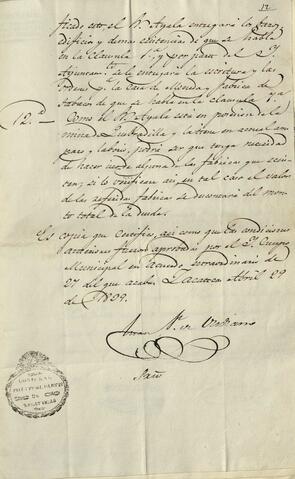 12
ficado esto el S. Ayala entregará la casa
edificios y demas existencias de que se habla
en la Clausula 1.ª y por parte del Y.
Ayuntam.to se le entregará la escritura y las
ordenes p.ª la casa de Moneda y fabrica de
tabacos de que se habla en la clausula 7.ª
12.ª Como el S. Ayala está en posesion de la
mina de Quebradilla y la tiene en actual am-
paro y labor, podrá ser que tenga necesidad
de hacer uso de alguna de las fabricas que
si lo verificare asi, en tal caso el valor
de las referidas fabricas se descontará del mon-
to total de la deuda.
Es copia que certifico, asi como que las condiciones
anteriores fueron aprobadas por el Y. Cuerpo
Municipal en Acuerdo extraordinario de
27 del que acaba. Zacatecas Abril 29
de 1829.
Srio